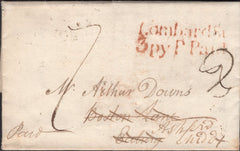 Lombard St
3py P Paid
7
2
Mr. Arthur Downs
Boston Lane
Ealing
Paid